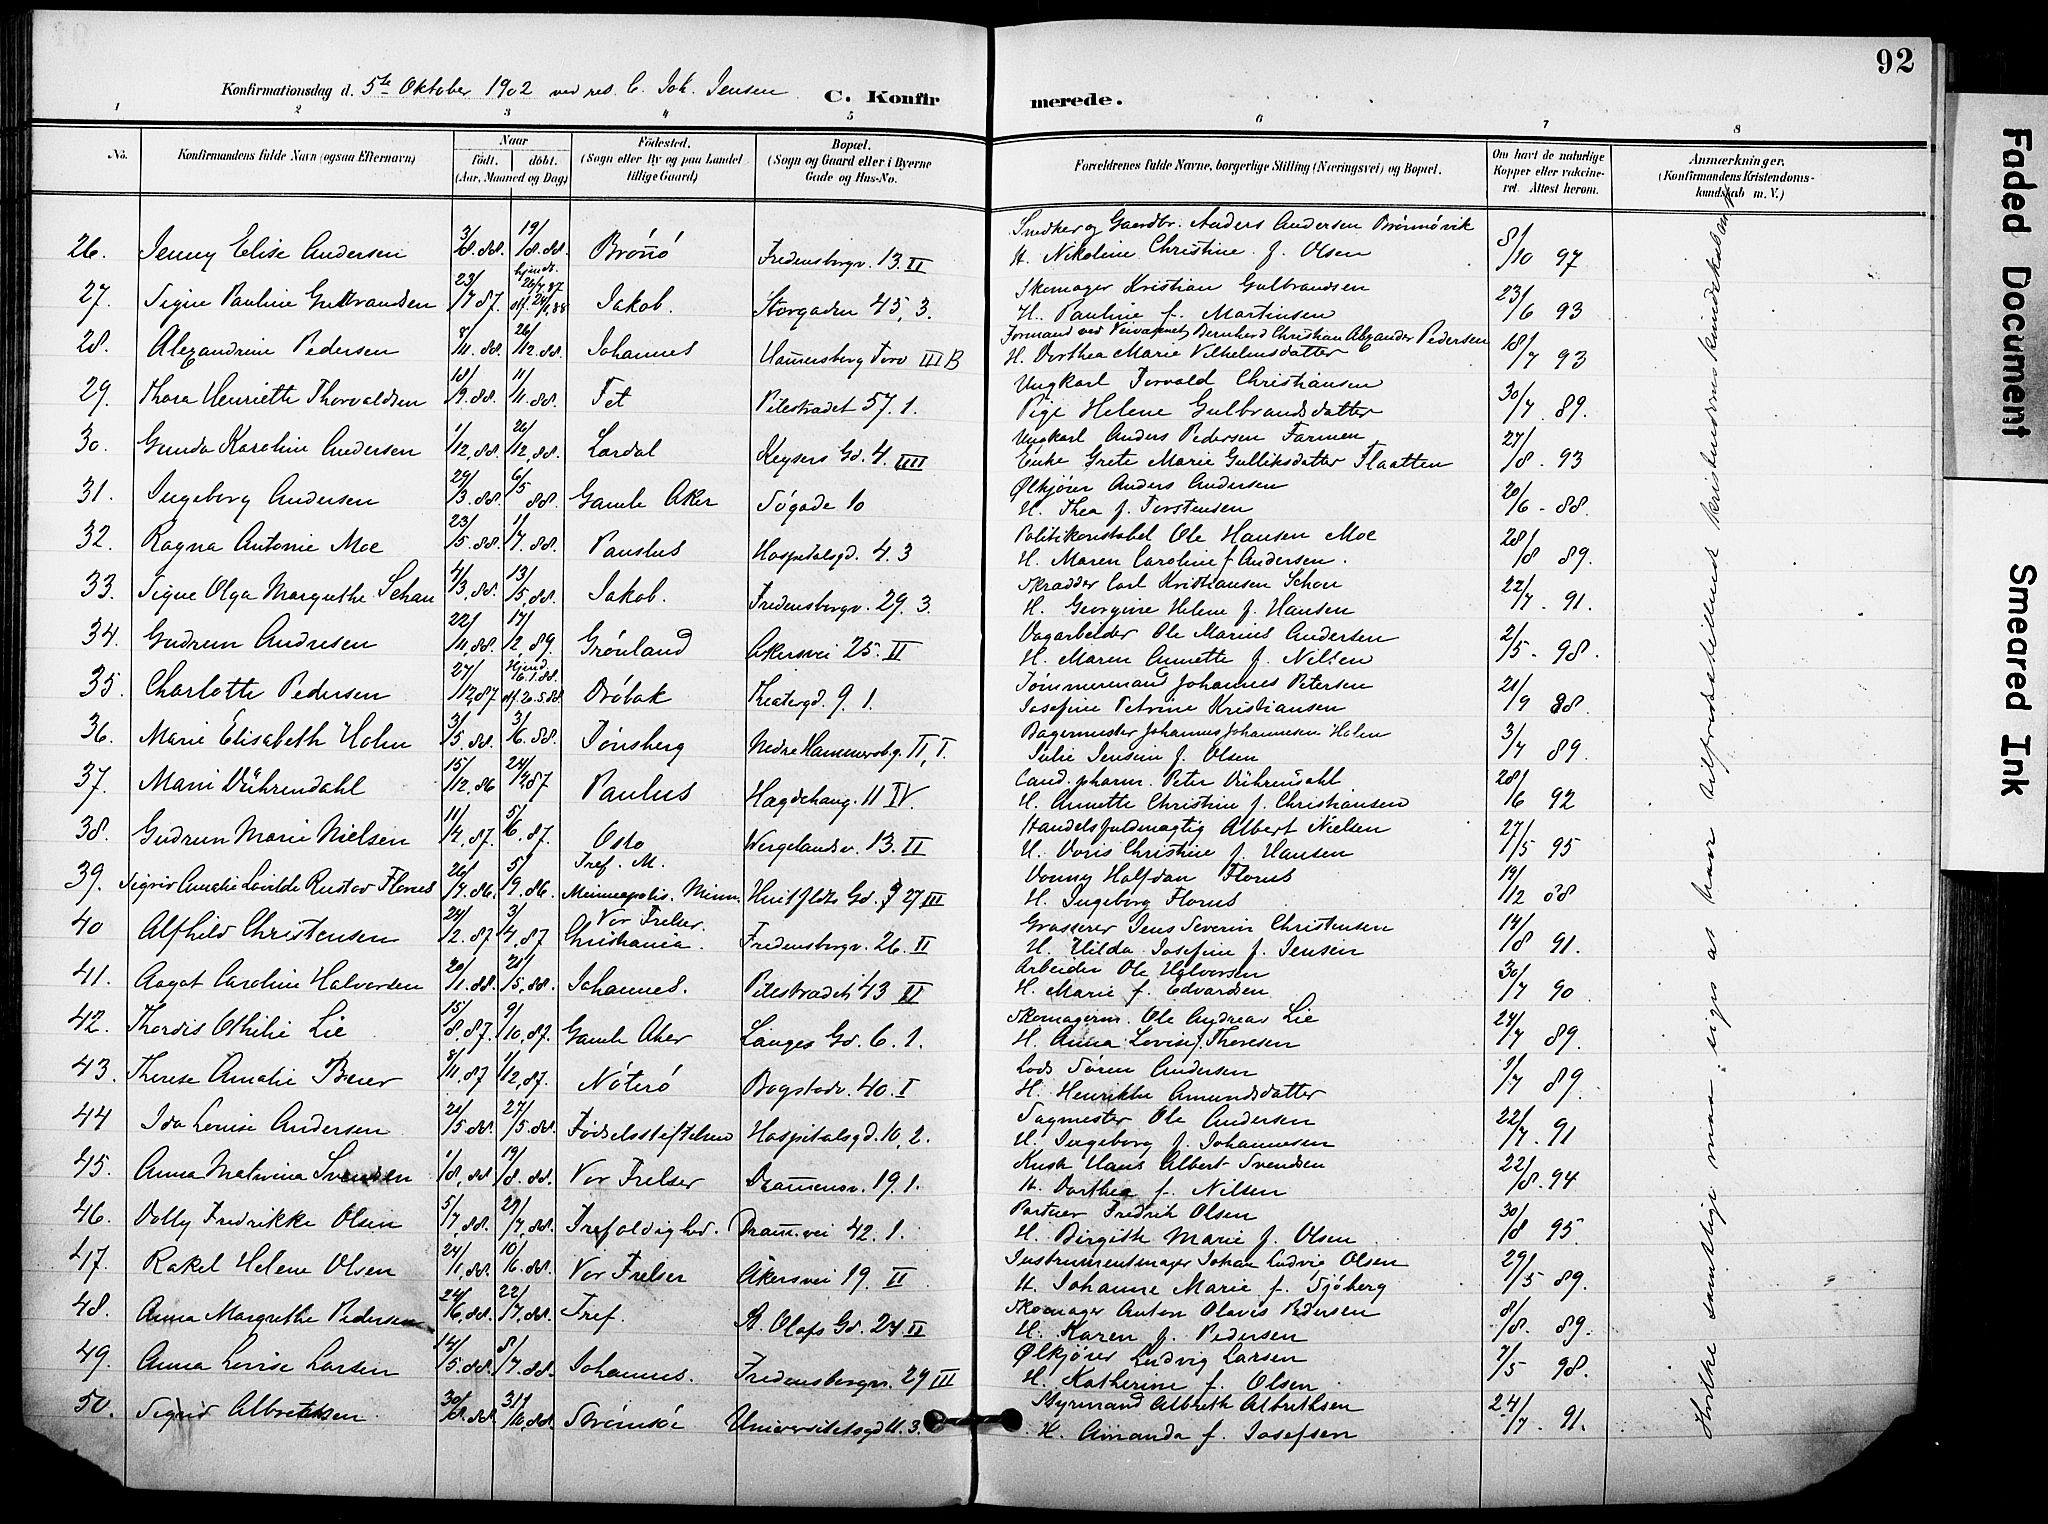 92
Konfirmationsdag d. 5te Oktober 1902 ved res. C. Joh. Jensen. C. Konfirmerede.
1 2 3 4 5 6 7 8
No. Konfirmandens fulde Navn (ogsaa Efternavn) Naar født. døbt. (Aar, Maaned og Dag) Fødested. (Sogn eller By og paa Landet tillige Gaard) Bopæl. (Sogn og Gaard eller i Byerne Gade og Hus-No. Forældrenes fulde Navne, borgerlige Stilling (Næringsvei) og Bopæl. Om havt de naturlige Kopper eller vakcineret. Attest herom. Anmærkninger. (Konfirmandens Kristendomskundskab m. V.)
26. Jenny Elise Andersen 3/8.88. 19/8.88. Brønø Fredensborgv. 13 II Snedker og Gaardbr. Anders Andersen Brønnøvik
H. Nikoline Christine f. Olsen 8/10 97
27. Signe Pauline Gulbrandsen 23/7 87. hjemdt. 26/7.87 Jakob. Storgaden 45, 3. Skomager Kristian Gulbrandsen
H. Pauline f. Martinsen 23/6 93
28. Alexandrine Pedersen 8/11.88. 26/12.88. Johannes Hammersborg Torv III B Formand ved Veivæsenet, Bernhard Christian Alexander Pedersen
H. Dorthea Marie Vilhelmsdatter 18/7 93
29. Thora Henriette Thorvaldsen 18/9.88. 11/11.88. Fet Pilestrædet 57. 1. Ungkarl Torvald Christiansen
Pige Helene Gulbrandsdatter 30/7. 89.
30. Gunda Karoline Andersen 1/12.88. 26/12.88. Lardal Keysers Gd. 4. IIII Ungkarl Anders Pedersen Farmen
Enke Grete Marie Gulliksdatter Flaatten 27/8. 93
31. Ingeborg Andersen 29/3.88. 6/5 88. Gamle Aker Søgade 10 Ølkjører Anders Andersen
H. Thea f. Torstensen 20/6 - 88.
32. Ragna Antonie Moe 23/5.88. 1/7.88. Paulus Hospitalsgd. 4. 3 Politikonstabel Ole Hansen Moe
H. Maren Caroline f. Andersen. 28/8 89.
33. Signe Olga Margrethe Schau 4/3.88. 13/5.88. Jakob. Fredensborgv. 29. 3. Skrædder Carl Kristiansen Schou
H. Georgine Helene f. Hansen 22/7. 91.
34. Gudrun Andresen 22/11.88. 17/2.89. Grønland Akersvei 25. II Dagarbeider Ole Marius Andersen
H. Maren Annette f. Nilsen 2/5 - 98.
35. Charlotte Pedersen 27/12 87 Hjemd. 16.1.88. Drøbak Theatergd. 9. 1. Tømmermand Johannes Petersen
Josefine Petrine Kristiansen 21/9 88.
36. Marie Elisabeth Holm 3/5.88. 3/6.88. Tønsberg Nedre Hammersbg. II, I. Bagermester Johannes Johannesen Holm
Julie Jensine f. Olsen 3/7 89.
37. Marie Dührendahl 15/12.86 24/ 87 Paulus Hægdehaug. 11 IV. Cand. pharm. Peter Dührendahl
H. Annette Christine f. Christiansen 28/6 92
38. Gudrun Marie Nielsen 11/4.87. 5/6.87. Oslo Wergelandsv. 13. II Handelsfuldmægtig Albert Nielsen
H. Doris Christine f. Hansen 27/5 95
39. Sigrid Amalie Lovilde Rustad Florus 26/7.86. 5/9.86. Tref. M. Minneapolis. Minn. Huitfeldts Gd. 27 III Halfdan Florus
H. Ingeborg Florus 19/12 88
40 Alfhild Christensen 24/2.87 3/4.87 Vor Frelser. Christiania. Fredensborgv. 26. II Grosserer Jens Severin Christensen
H. Hilda Josefine f. Jensen 14/8 91.
41. Aagot Caroline Halvorsen 20/1.88. 21/5.88. Johannes. Pilestrædet 43 II Arbeider Ole Halvorsen
H. Marie f. Edvardsen 30/7 90
42. Thordis Othilie Lie 15/8.87. 9/10.87. Gamle Aker Langes Gd. 6. 1. Skomagerm. Ole Andreas Lie
H. Anna Lovise f. Thoresen 24/7 89.
43. Therese Amalie Beier 8/11.87 1/12.87. Nøterø Bogstadv. 40. I Lods Søren Andersen
H. Henrikke Amundsdatter 1/7 89.
44 Ida Louise Andersen 21/5.88. 27/5.88. Fødselsstiftelsen Hospitalsgd. 10, 2. Sagmester Ole Andersen
H. Ingeborg f. Johannesen 22/7. 91
45. Anna Malvina Svendsen 1/8.88 19/8.88. Vor Frelser Drammensv. 19. 1. Kusk Hans Albert Svendsen
H. Dorthea f. Nilsen 22/8. 94
46. Dolly Fredrikke Olsen 5/7.88. 29/7.88. Trefoldighed. Dram.vei 42. 1. Partner Fredrik Olsen
H. Birgith Marie f. Olsen 30/8 95.
47. Rakel Helene Olsen 24/1.88. 10/6.88. Vor Frelser Akersvei 19. II Instrumentmager Johan Ludvig Olsen
H. Johanne Marie f. Sjøberg 29/5 89.
48. Anna Margrethe Pedersen 24/6.88. 22/7.88. Tref. St. Olafs Gd. 24 II Skomager Anton Olavis Pedersen
H. Karen f. Pedersen 8/8. 89.
49. Anna Lovise Larsen 14/5.88. 8/7.88 Johannes. Fredensborgv. 29 III Ølkjører Ludvig Larsen
H. Katherine f. Olsen 7/5 98.
50. Sigrid Albrethsen 30/8.88 31/10.88. Strømsø Universitetsgd 11. 3. Styrmand Albreth Albrethsen
H. Amanda f. Josefsen 24/7. 91.
Hvilke samtlige maa siges at have tilfredsstillende kristendomskundskab
Faded Document
Smeared Ink